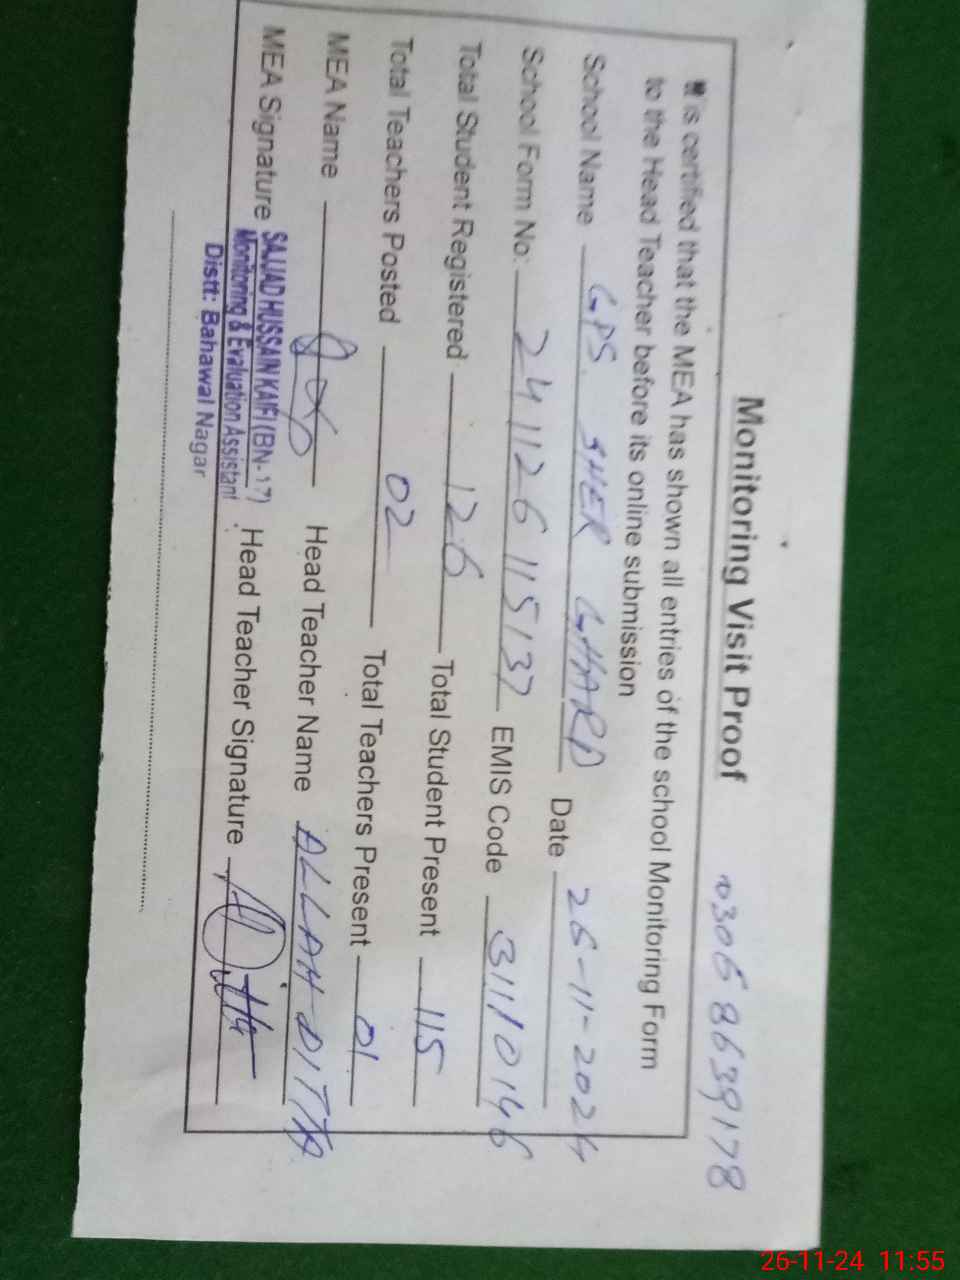 Monitoring Visit Proof 03068639178
It is certified that the MEA has shown all entries of the school Monitoring Form
to the Head Teacher before its online submission
School Name GPS. SHER GHARD Date 26-11-2024
School Form No: 241126115137 EMIS Code 31110146
Total Student Registered 126 Total Student Present 115
Total Teachers Posted 02 Total Teachers Present 01
MEA Name Head Teacher Name ALLAH DITTA
MEA Signature SAJJAD HUSSAIN KAIFI (BN-17) Head Teacher Signature
Monitoring & Evaluation Assistant
Distt: Bahawal Nagar
26-11-24 11:55